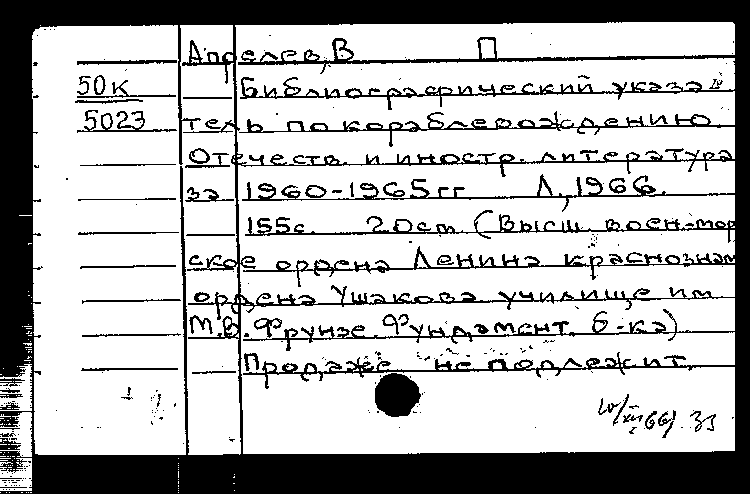 Апрелев, В П
50к Библиографический указа
5023 тель по кораблевождению.
Отечеств. и иностр. литература
за 1960-1965гг Л., 1966.
155с. 20cm (Высш. воен-мор
ское ордена Ленина краснознам
ордена Ушакова училище им
М.В. Фрунзе. Фундамент. б-ка)
Продаже не подлежит.
33